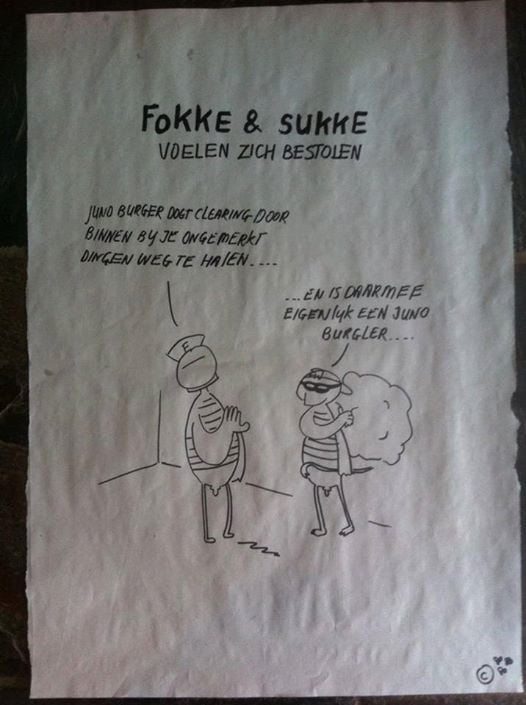 FOKKE & SUKKE
VOELEN ZICH BESTOLEN
JUNO BURGER DOGT CLEARING DOOR
BINNEN BY JE ONGEMERKT
DINGEN WEG TE HALEN....
...EN IS DAARMEE
EIGENLYK EEN JUNO
BURGLER....
F
©